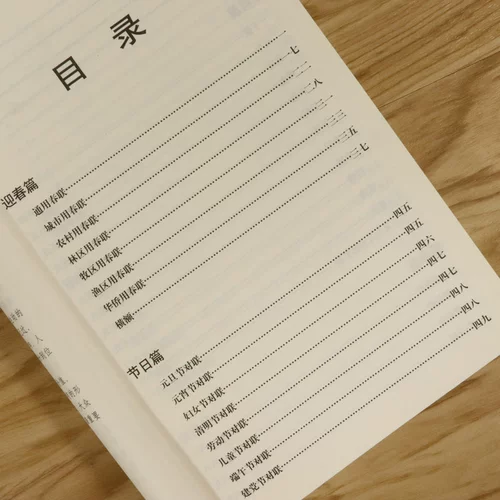 目录
迎春篇
通用春联
城市用春联 七
农村用春联
林区用春联 二八
牧区用春联 三一
渔区用春联 三三
华侨用春联 三五
横额 三七
节日篇
元旦节对联 四五
元宵节对联 四五
妇女节对联 四六
清明节对联 四七
劳动节对联 四七
儿童节对联 四八
端午节对联 四八
建党节对联 四九